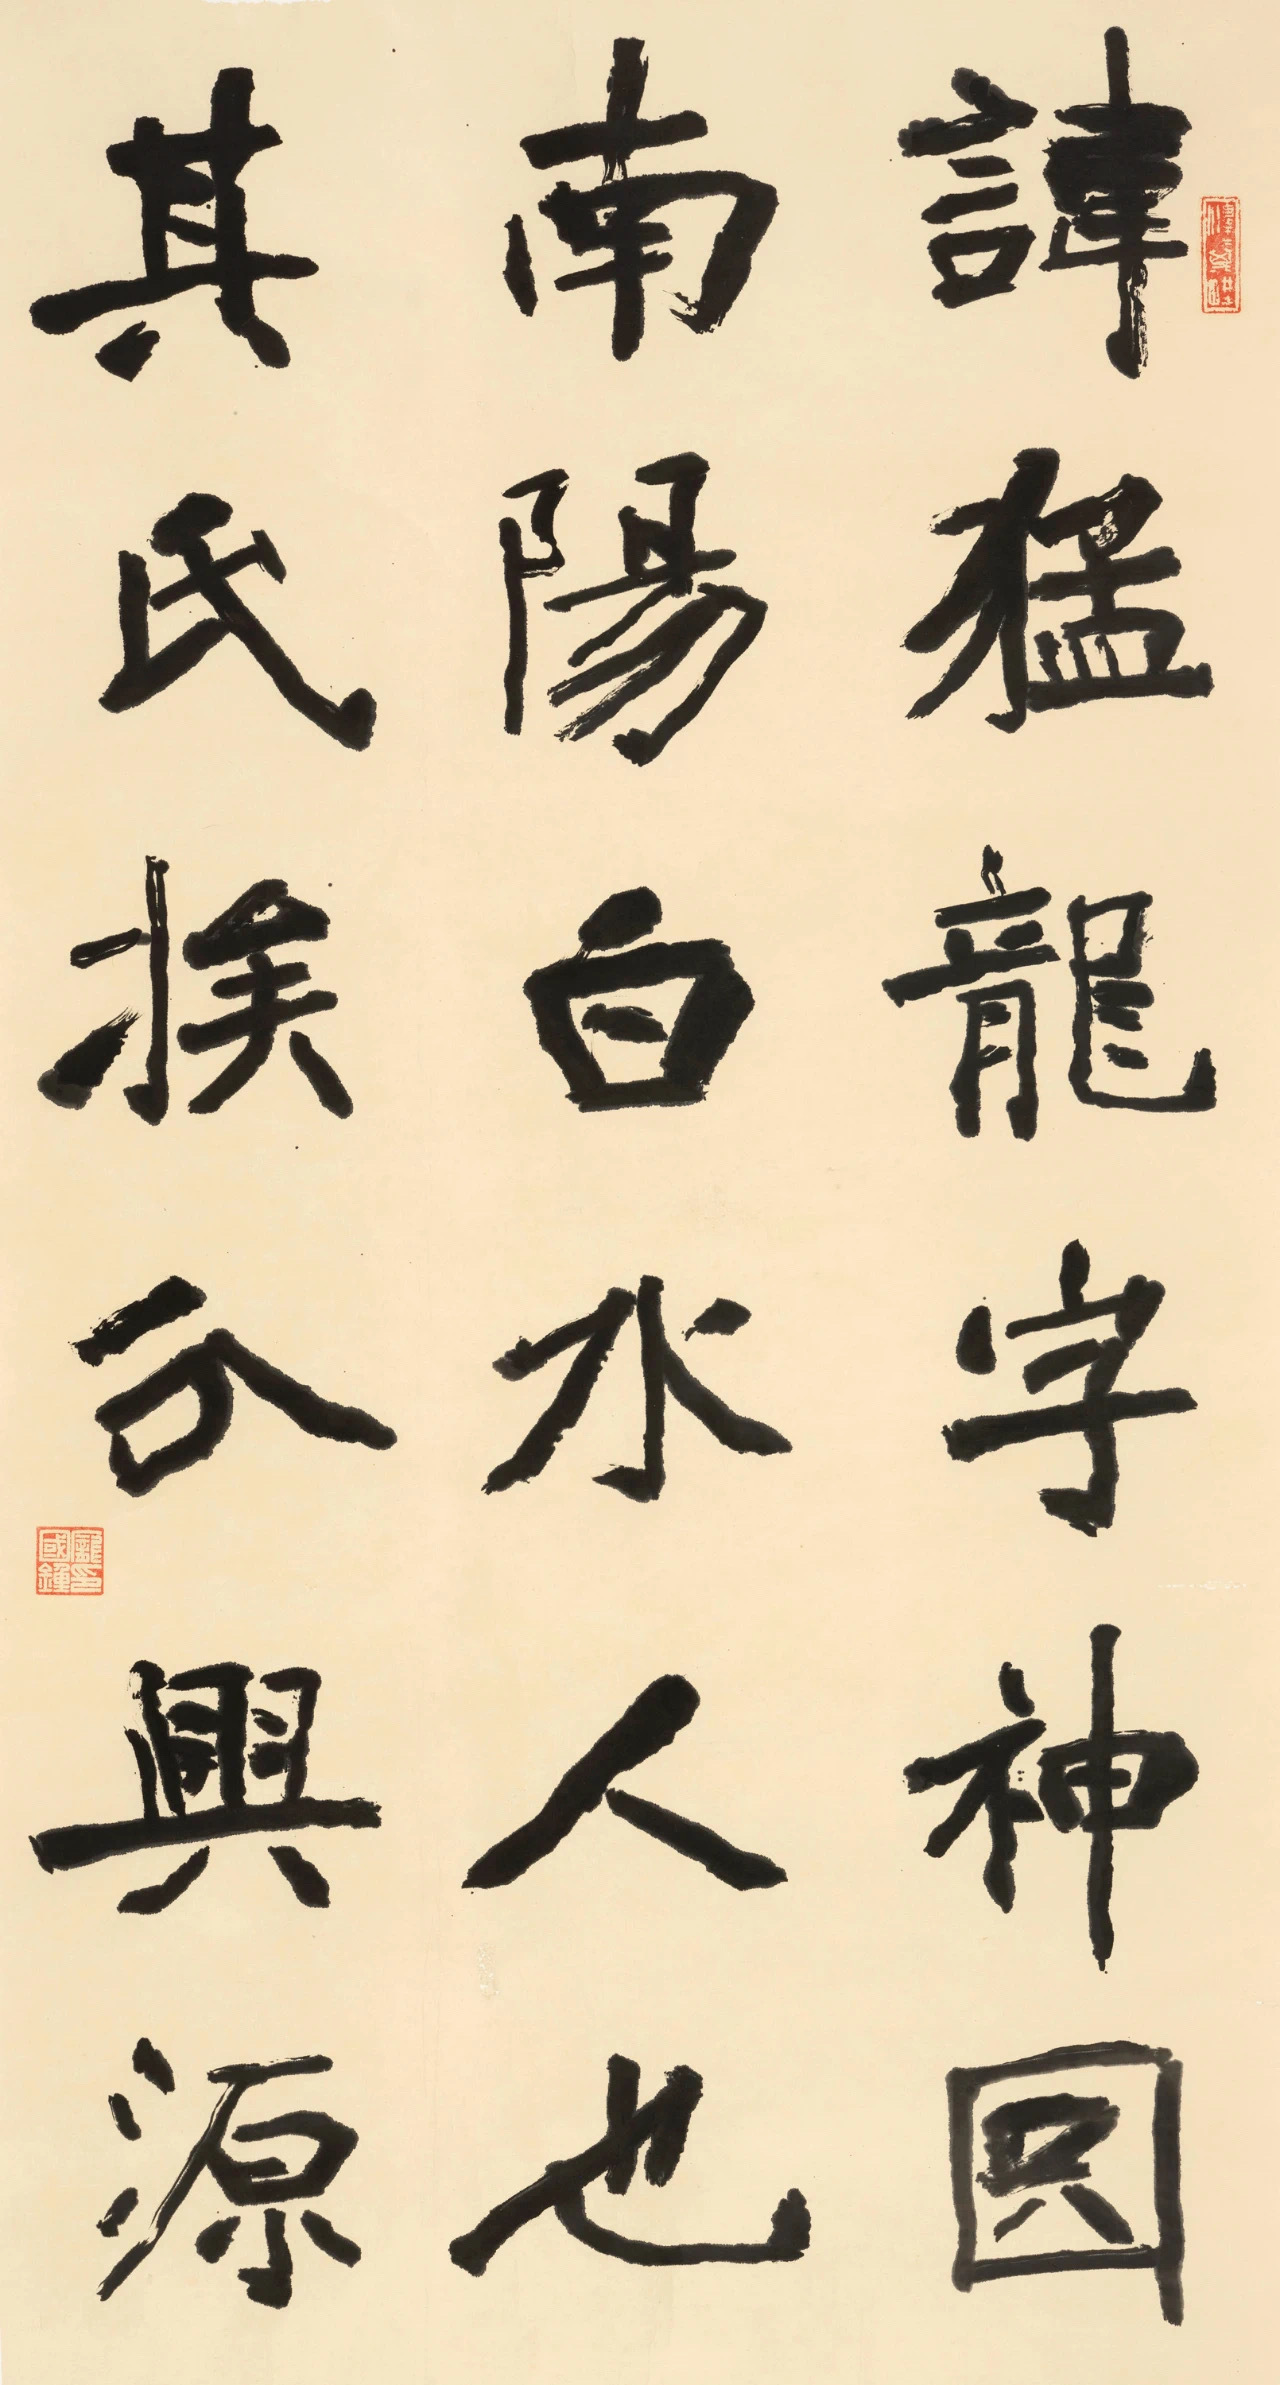 諱猛龍字神囧
南陽白水人也
其氏族分興源